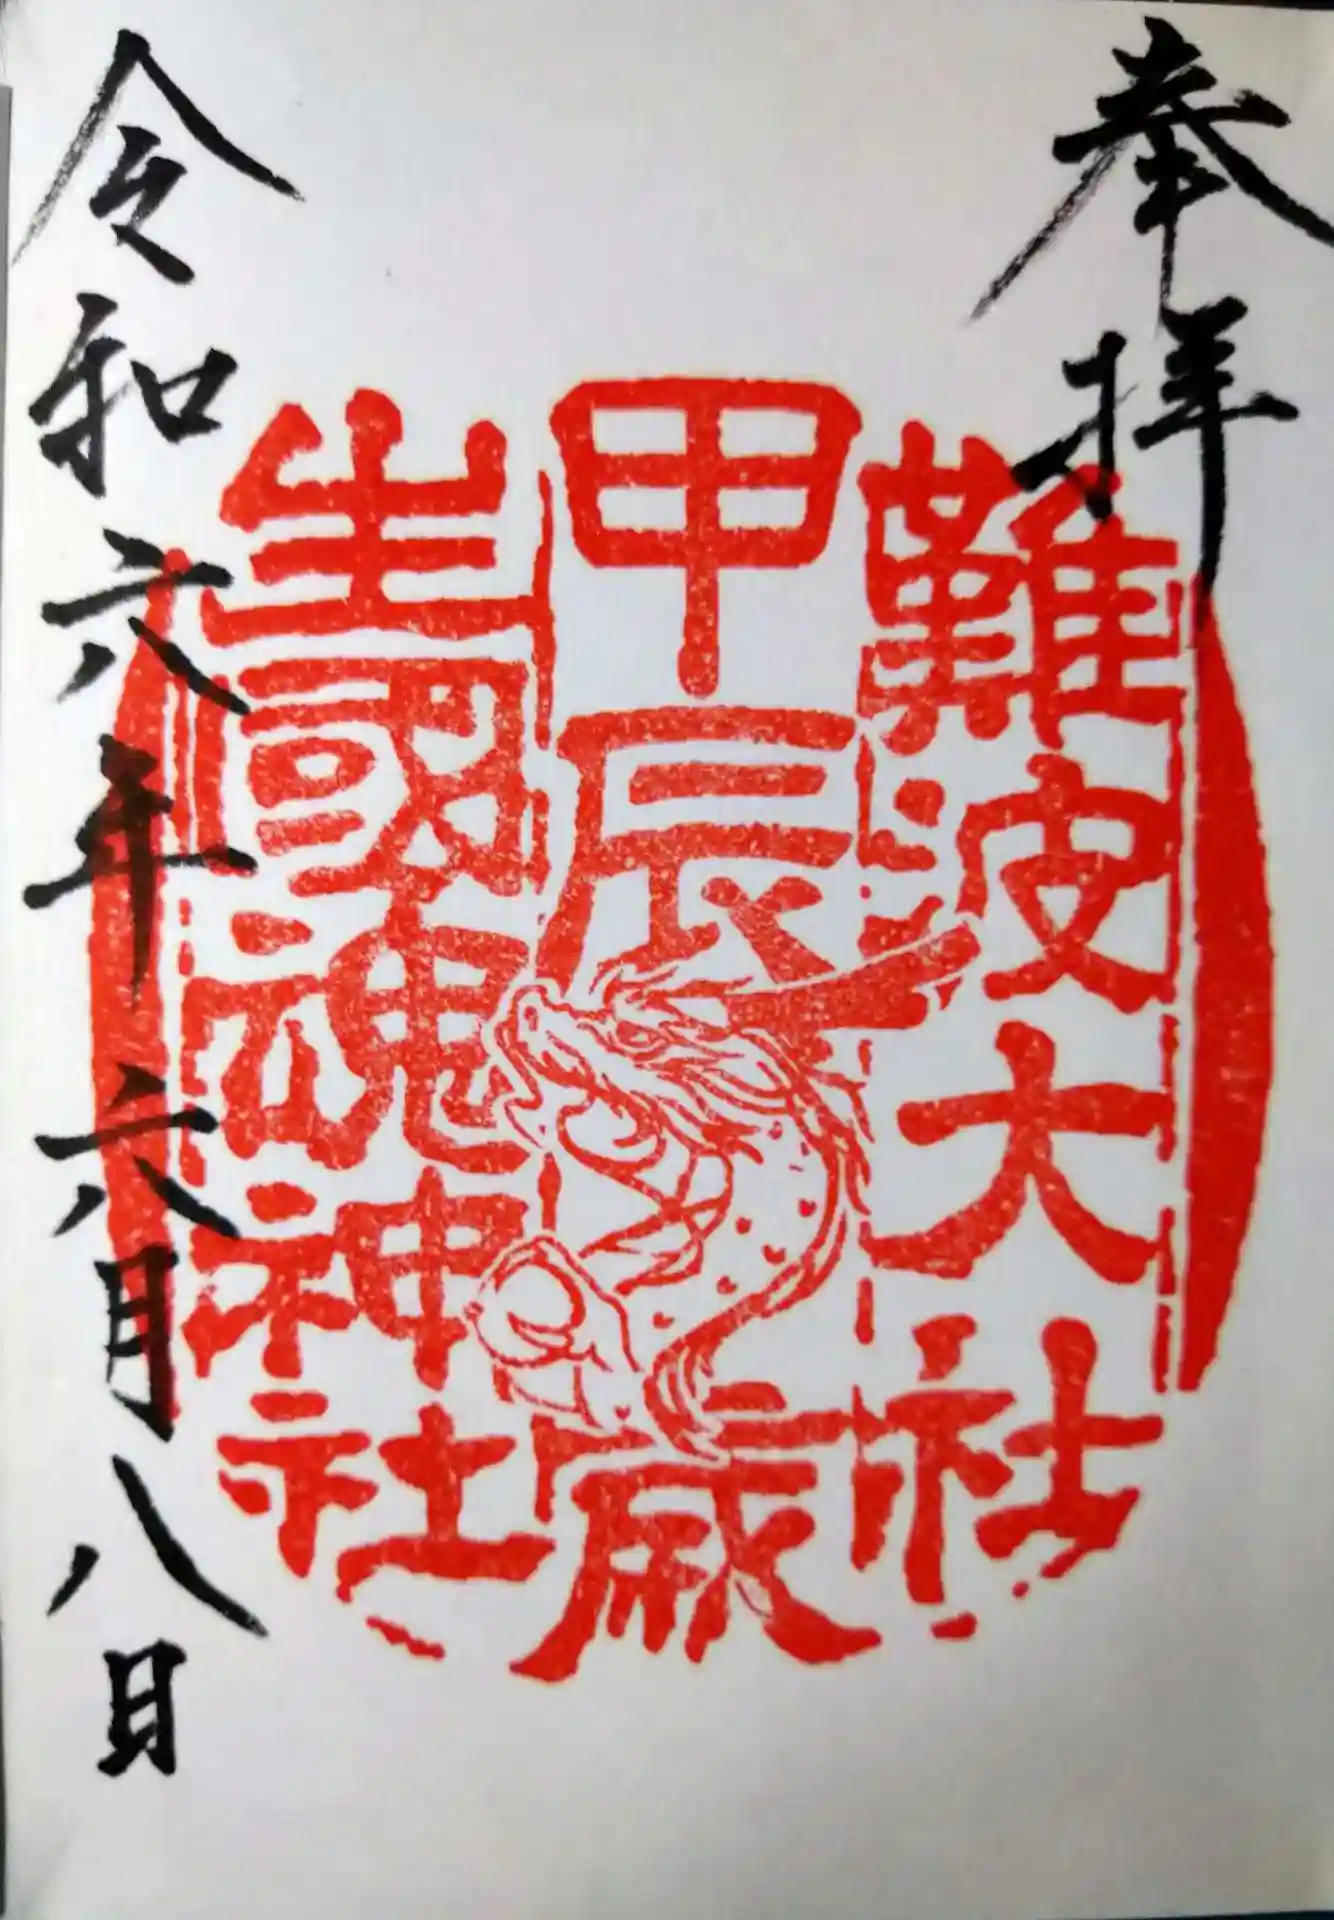 奉拝
難波大社
甲辰歳
生國魂神社
令和六年六月八日